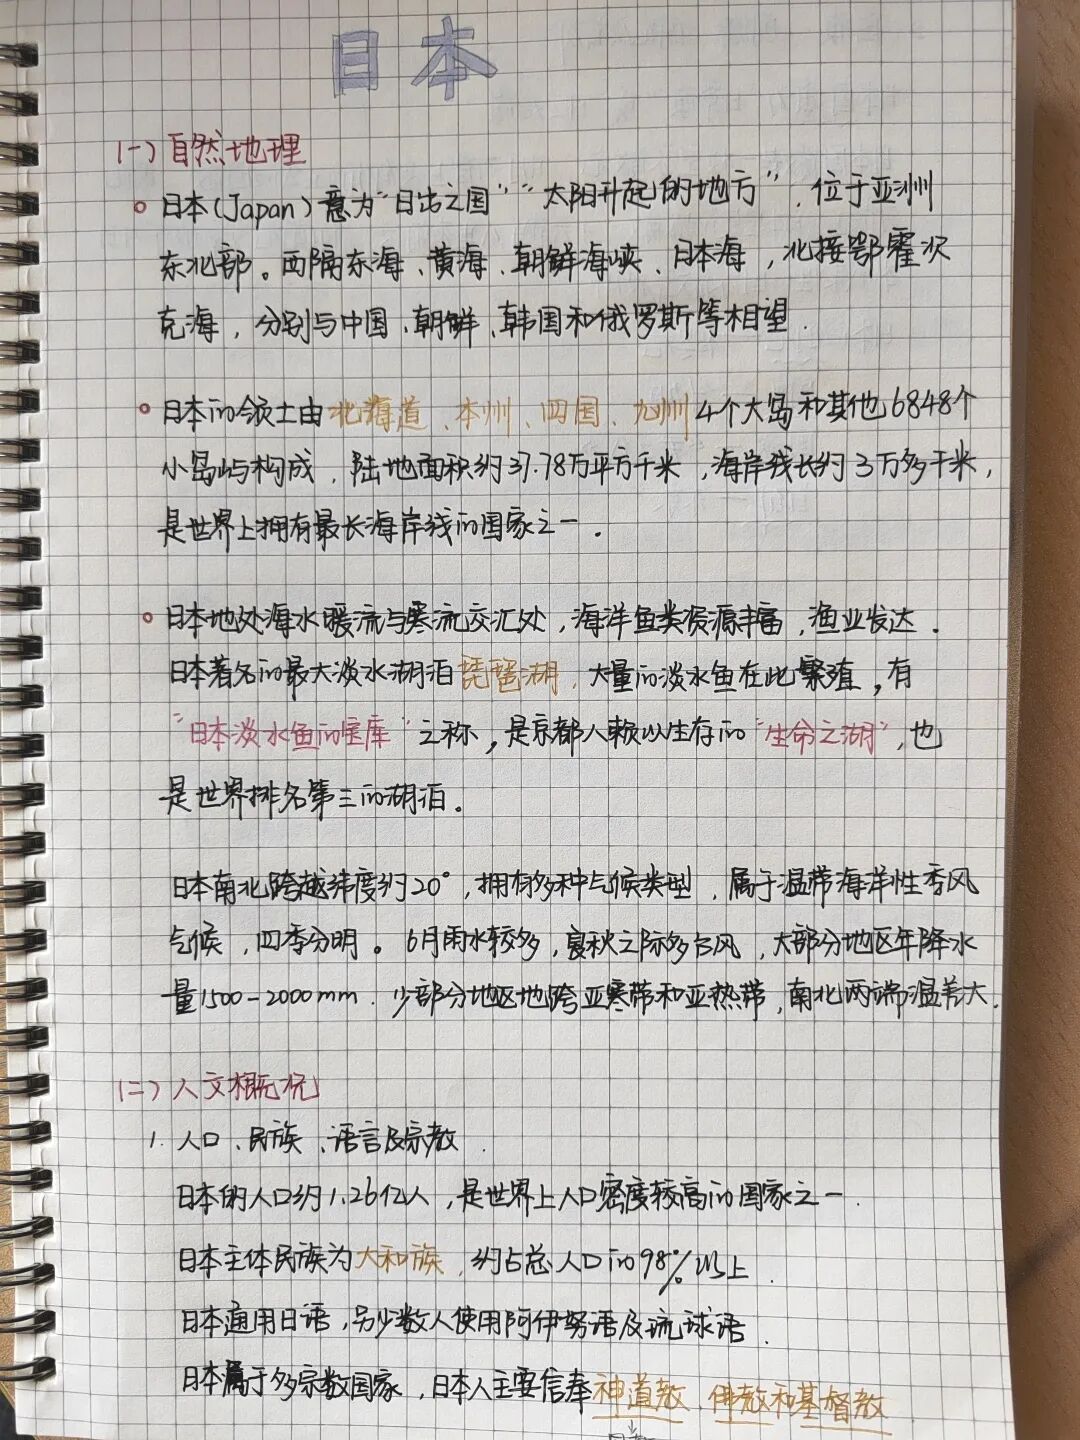 日本
(一) 自然地理
日本(Japan)意为"日出之国""太阳升起的地方",位于亚洲
东北部。西隔东海、黄海、朝鲜海峡、日本海,北接鄂霍次
克海,分别与中国、朝鲜、韩国和俄罗斯等相望.
日本的领土由北海道、本州、四国、九州4个大岛和其他6848个
小岛屿构成,陆地面积约37.78万平方千米,海岸线长约3万多千米,
是世界上拥有最长海岸线的国家之一.
日本地处海水暖流与寒流交汇处,海洋鱼类资源丰富,渔业发达.
日本著名的最大淡水湖泊琵琶湖,大量的淡水鱼在此繁殖,有
"日本淡水鱼的宝库"之称,是京都人赖以生存的"生命之湖",也
是世界排名第三的湖泊。
日本南北跨越纬度约20°,拥有多种气候类型,属于温带海洋性季风
气候,四季分明。6月雨水较多,夏秋之际多台风,大部分地区年降水
量1500-2000mm.少部分地区地跨亚寒带和亚热带,南北两端温差大.
(二) 人文概况
1. 人口、民族、语言及宗教.
日本的人口约1.26亿人,是世界上人口密度较高的国家之一.
日本主体民族为大和族,约占总人口的98%以上.
日本通用日语,另少数人使用阿伊努语及琉球语.
日本属于多宗教国家,日本人主要信奉神道教、佛教和基督教